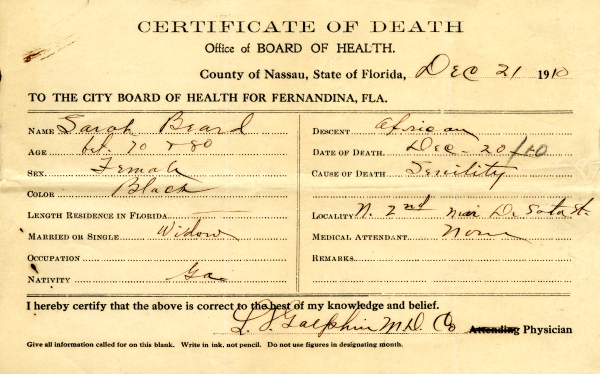 CERTIFICATE OF DEATH
Office of BOARD OF HEALTH.
County of Nassau, State of Florida, Dec 21 1910
TO THE CITY BOARD OF HEALTH FOR FERNANDINA, FLA.
NAME Sarah Beard
AGE bet. 70 & 80
SEX Female
COLOR Black
LENGTH RESIDENCE IN FLORIDA
MARRIED OR SINGLE Widow
OCCUPATION
NATIVITY Ga
DESCENT African
DATE OF DEATH Dec - 20/10
CAUSE OF DEATH Senility
LOCALITY N. 2nd near De Soto St.
MEDICAL ATTENDANT None
REMARKS
I hereby certify that the above is correct to the best of my knowledge and belief.
L. J. Galphin M.D. Co Attending Physician
Give all information called for on this blank. Write in ink, not pencil. Do not use figures in designating month.